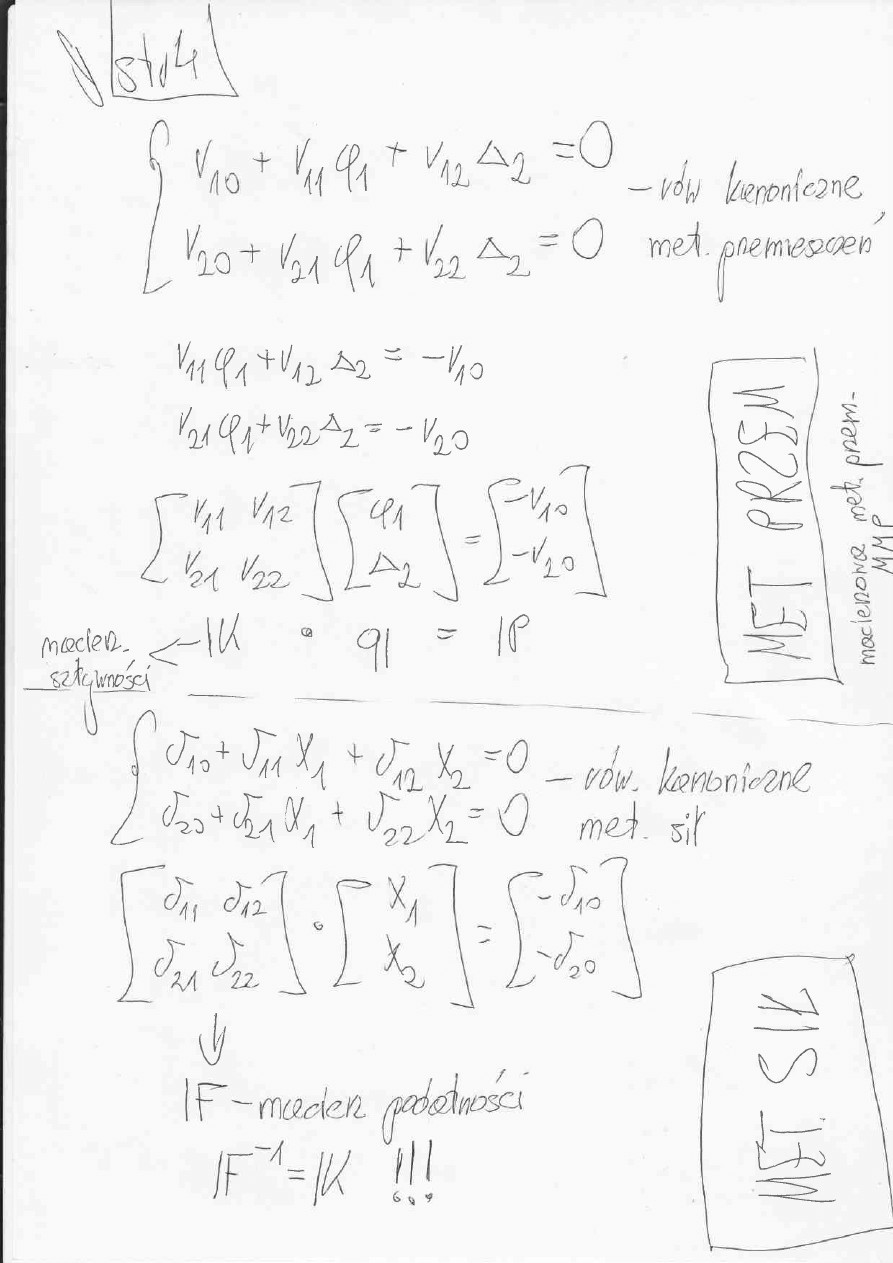 str 4
V₁₀ + V₁₁ φ₁ + V₁₂ Δ₂ = 0
V₂₀ + V₂₁ φ₁ + V₂₂ Δ₂ = 0
– rów kanoniczne
met. przemieszczeń
V₁₁ φ₁ + V₁₂ Δ₂ = -V₁₀
V₂₁ φ₁ + V₂₂ Δ₂ = -V₂₀
[V₁₁ V₁₂] [φ₁] = [-V₁₀]
[V₂₁ V₂₂] [Δ₂] = [-V₂₀]
macierz. ← IK · q = IP
sztywności
MET PRZEM
macierzowa met. przem. -
MMP
δ₁₀ + δ₁₁ X₁ + δ₁₂ X₂ = 0
δ₂₀ + δ₂₁ X₁ + δ₂₂ X₂ = 0
– rów. kanoniczne
met. sił
[δ₁₁ δ₁₂] · [X₁] = [-δ₁₀]
[δ₂₁ δ₂₂] [X₂] = [-δ₂₀]
↓
IF – macierz podatności
IF⁻¹ = IK !!!
MET. SIŁ